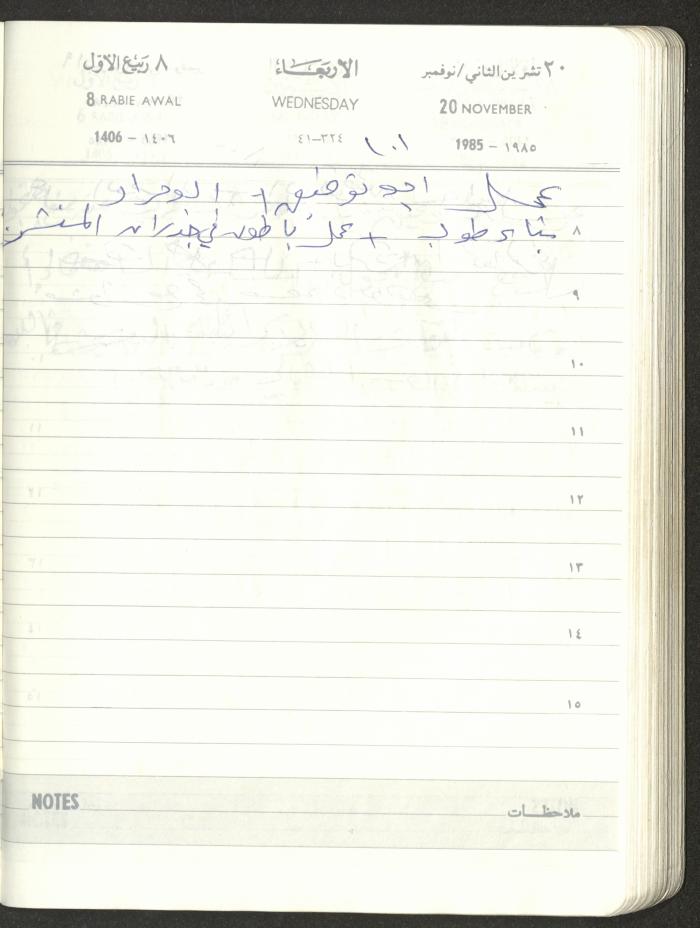 ٢٠ تشرين الثاني/نوفمبر الأربعاء ٨ ربيع الأول
20 NOVEMBER WEDNESDAY 8 RABIE AWAL
1985 – ١٩٨٥ ٣٢٤–٤١ 1406 – ١٤٠٦
١٠١
عمل ابو توفيق +
٨ بناء طوب + عمل باطون في جدران المنشر
٩
١٠
١١
١٢
١٣
١٤
١٥
NOTES ملاحظات